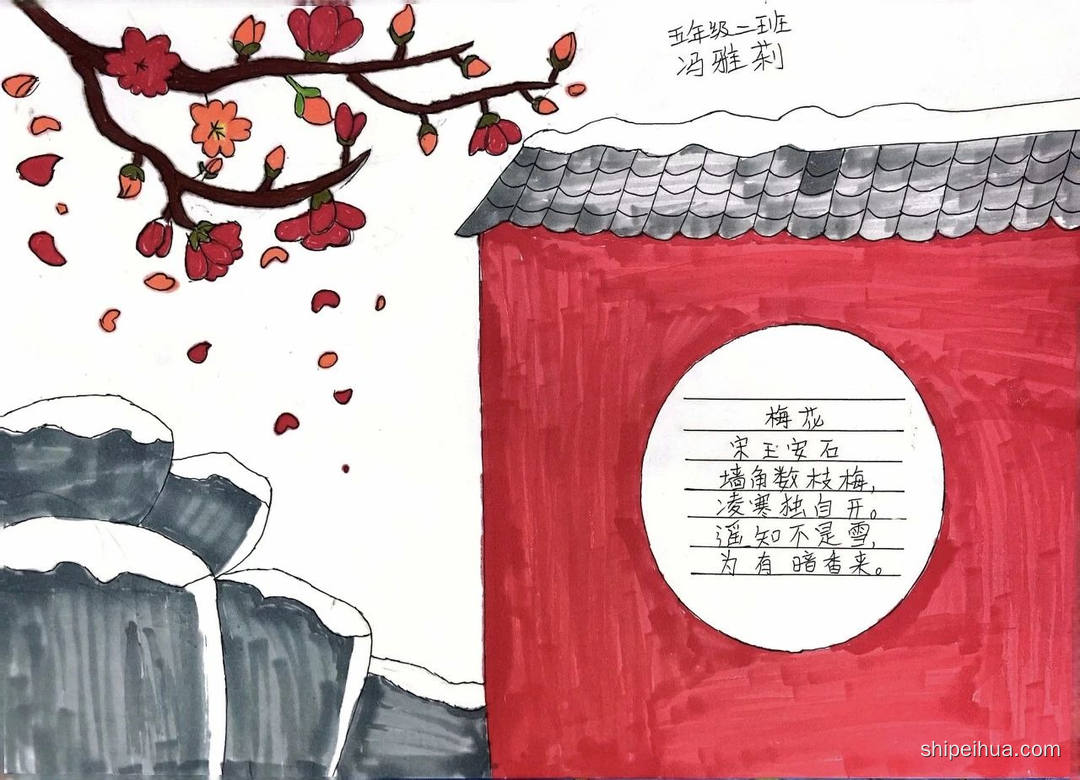 五年级二班
冯雅莉
梅花
宋王安石
墙角数枝梅,
凌寒独自开。
遥知不是雪,
为有暗香来。
shipeihua.com